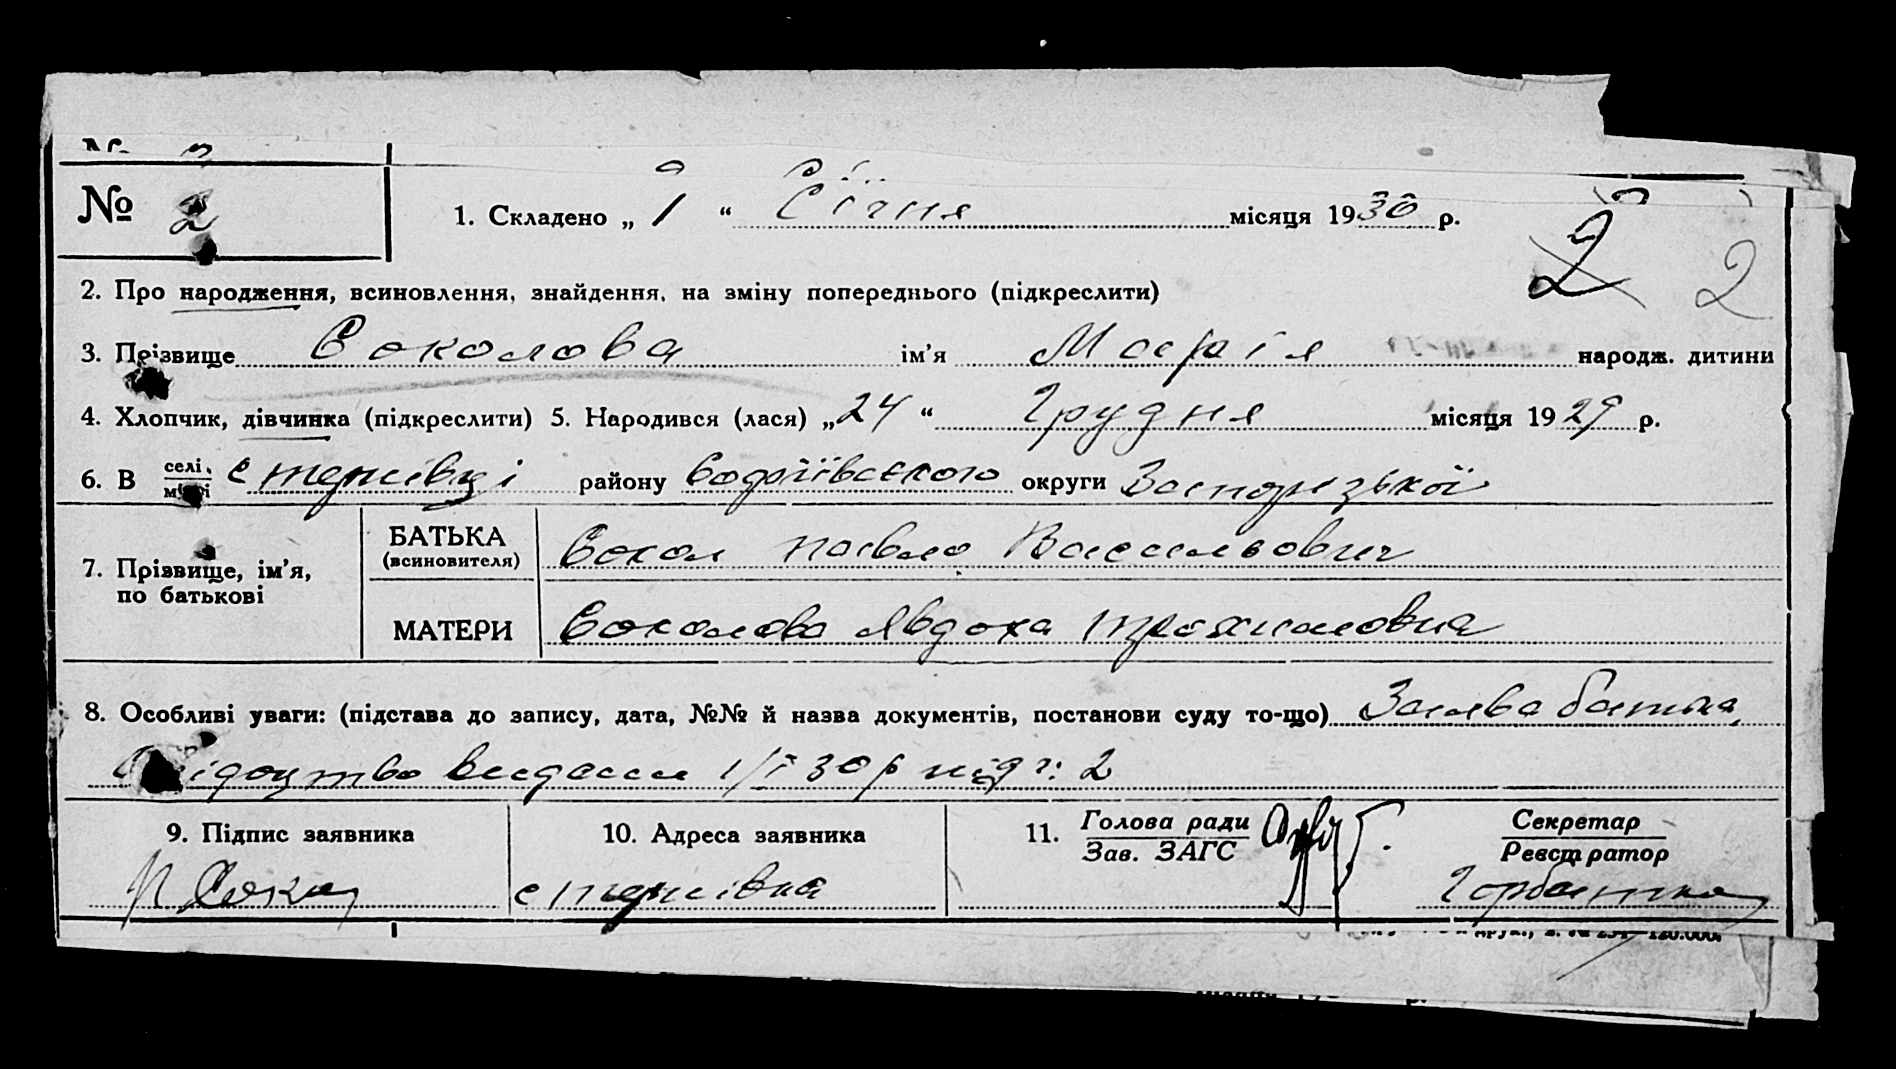 № 2
1. Складено „ 1 “ Січня місяця 1930 р.
2 2
2. Про народження, всиновлення, знайдення, на зміну попереднього (підкреслити)
3. Прізвище Соколова ім’я Марія народж. дитини
4. Хлопчик, дівчинка (підкреслити) 5. Народився (лася) „24“ Грудня місяця 1929 р.
6. В селі місті с тернівці району Софіївського округи Запорізької
7. Прізвище, ім’я, по батькові
БАТЬКА (всиновителя) Сокол Павло Васильович
МАТЕРИ Соколова Явдоха Трохимовна
8. Особливі уваги: (підстава до запису, дата, №№ й назва документів, постанови суду то-що) Заява батька,
видана 1/I 30 р під ч: 2
9. Підпис заявника 10. Адреса заявника 11. Голова ради Секретар
Зав. ЗАГС Реєстратор
П Сокол с тернівка Горбатко